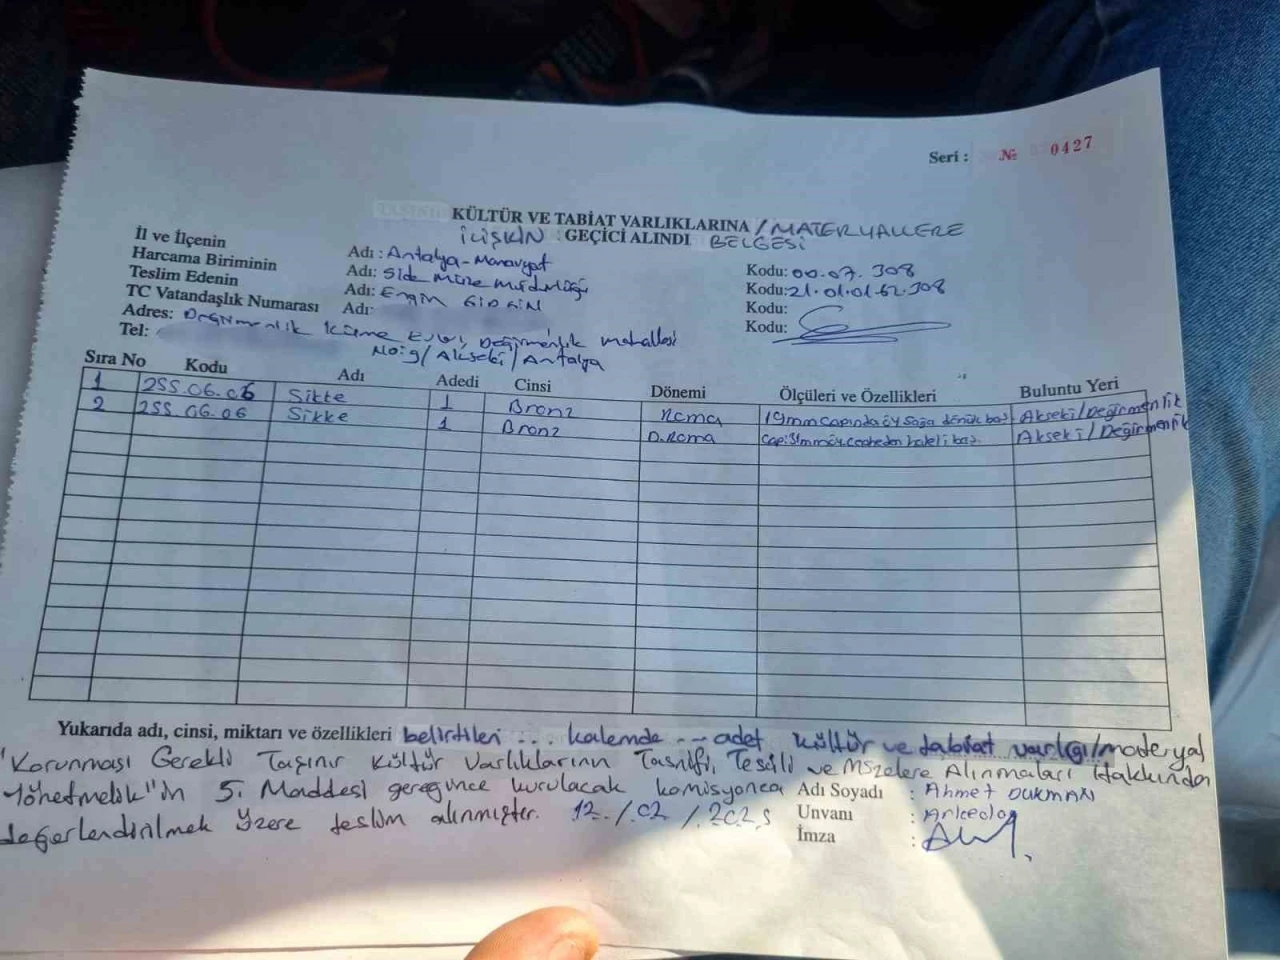 Seri : № 0427
KÜLTÜR VE TABİAT VARLIKLARINA / MATERYALLERE
İLİŞKİN GEÇİCİ ALINDI BELGESİ
İl ve İlçenin Adı : Antalya-Manavgat Kodu: 00.07.308
Harcama Biriminin Adı: Side Müze Müdürlüğü Kodu: 21.01.01.62.308
Teslim Edenin Adı: Engin Kodu:
TC Vatandaşlık Numarası Adı: Kodu:
Adres: Değirmenlik Küme Evleri, Değirmenlik mahallesi
Tel: No:9/Akseki/Antalya
Sıra No Kodu Adı Adedi Cinsi Dönemi Ölçüleri ve Özellikleri Buluntu Yeri
1 255.06.06 Sikke 1 Bronz Roma 19mm çapında öy sağa dönük baş Akseki/Değirmenlik
2 255.06.06 Sikke 1 Bronz D.Roma Çap: öy. cepheden haleli baş Akseki/Değirmenlik
Yukarıda adı, cinsi, miktarı ve özellikleri belirtilen ... kalemde ... adet kültür ve tabiat varlığı/materyal
"Korunması Gerekli Taşınır Kültür Varlıklarının Tasnifi, Tescili ve Müzelere Alınmaları Hakkında
Yönetmelik"in 5. Maddesi gereğince kurulacak komisyonca
değerlendirilmek üzere teslim alınmıştır. 12./02/2025
Adı Soyadı : Ahmet
Unvanı : Arkeolog
İmza :